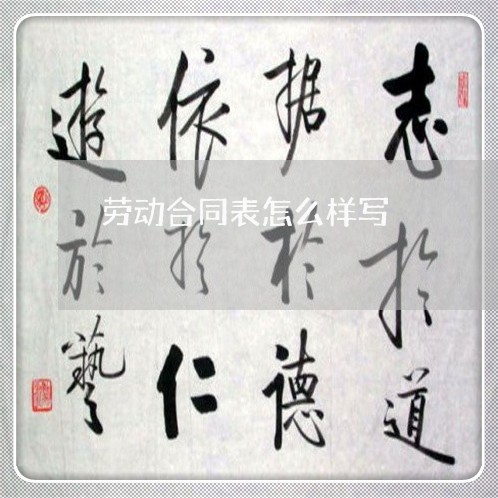 志於道
据於德
依於仁
遊於藝
劳动合同表怎么样写